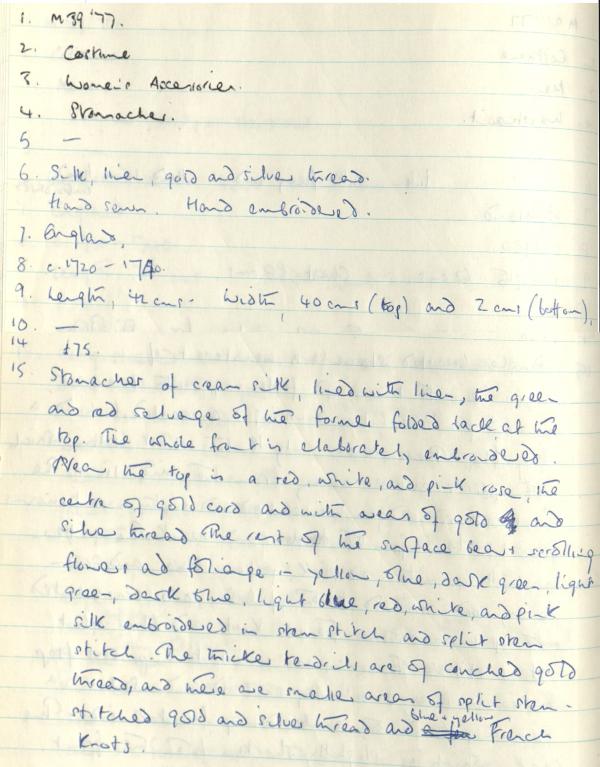 1. M39'77.
2. Costume
3. Women's Accessories.
4. Stomacher.
5 —
6. Silk, linen, gold and silver thread.
Hand sewn. Hand embroidered.
7. England,
8. c.1720 - 1740.
9. Length, 42 cms. Width, 40 cms (top) and 2 cms (bottom).
10. —
14 £75.
15 Stomacher of cream silk, lined with linen, the green
and red selvage of the former folded back at the
top. The whole front is elaborately embroidered.
Near the top is a red, white, and pink rose, the
centre of gold cord and with areas of gold and
silver thread. The rest of the surface bears scrolling
flowers and foliage in yellow, blue, dark green, light
green, dark blue, light blue, red, white, and pink
silk embroidered in stem stitch and split stem
stitch. The thicker tendrils are of couched gold
thread, and there are smaller areas of split stem-
stitched gold and silver thread and blue + yellow French
knots.